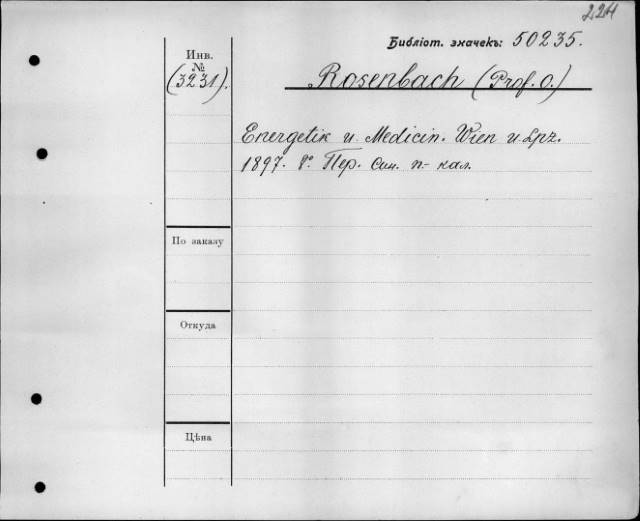 224
Библіот. значекъ: 50235.
Инв.
№
(3231).
Rosenbach (Prof. O.)
Energetik u. Medicin. Wien u. Lpz.
1897. 8º. Пер. син. п-кал.
По заказу
Откуда
Цѣна